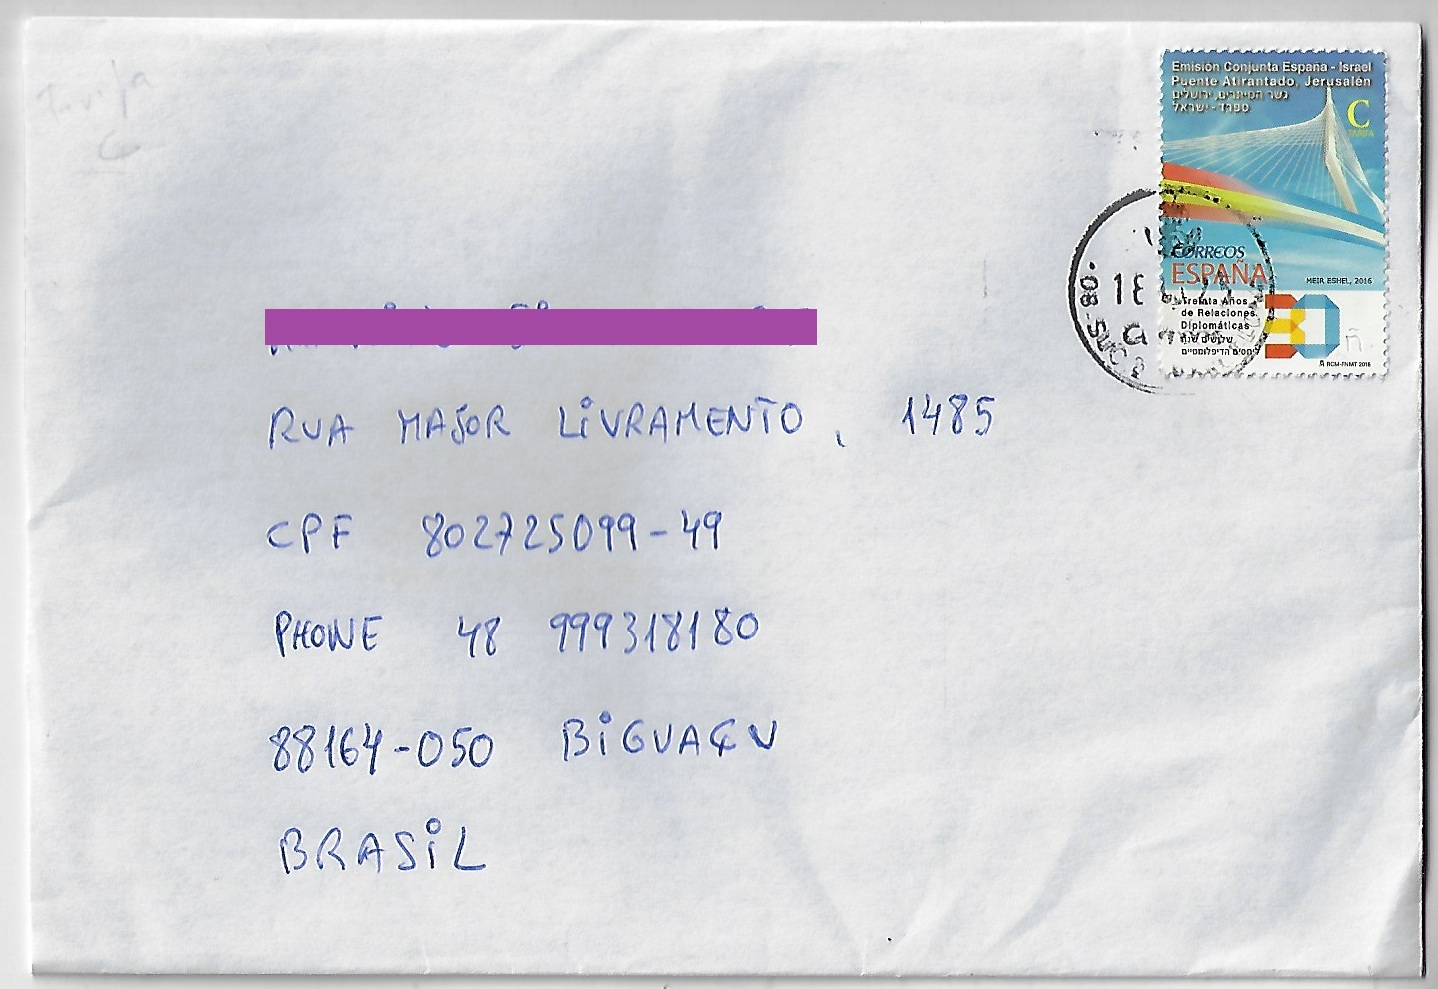 Emisión Conjunta España - Israel
Puente Atirantado, Jerusalén
גשר המיתרים, ירושלים
ספרד - ישראל
C
TARIFA
CORREOS
ESPAÑA
MEIR ESHEL, 2016
Treinta Años
de Relaciones
Diplomáticas
שלושים שנה
ליחסים הדיפלומטיים
30
RCM-FNMT 2016
08-SUC
RUA MAJOR LIVRAMENTO, 1485
CPF 802725099-49
PHONE 48 999318180
88164-050 BIGUAÇU
BRASIL